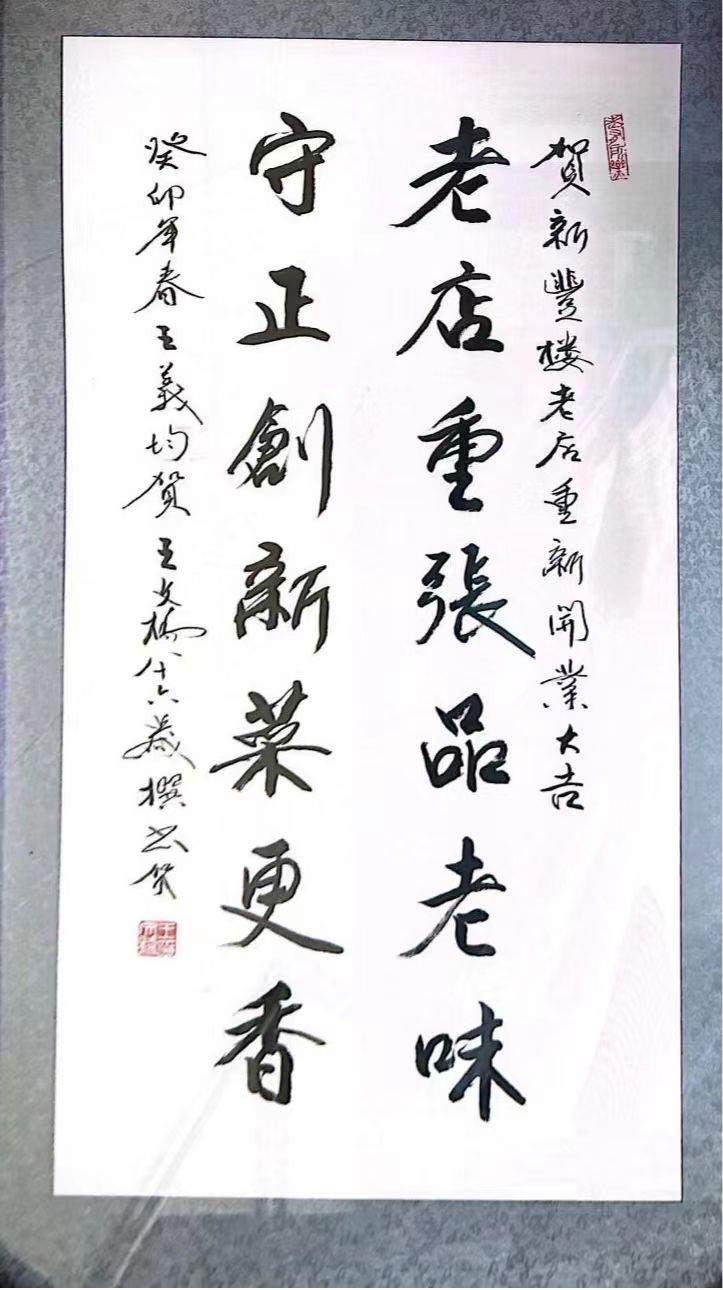 賀新豐楼老店重新開業大吉
老店重張品老味
守正創新菜更香
癸卯年春王義均贺王文桥八十六歲撰书贺